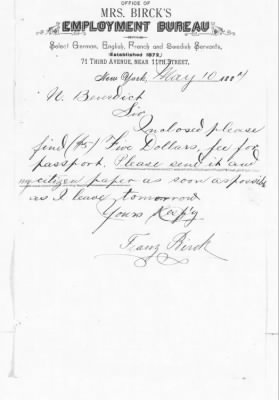 OFFICE OF
MRS. BIRCK'S
EMPLOYMENT BUREAU
Select German, English, French and Swedish Servants,
Established 1872,
71 THIRD AVENUE, NEAR 11TH STREET,
New York, May 10 188
N. Benedict
Sir
Inclosed please
find ($5) Five Dollars, fee for
passport. Please send it and
my citizen paper as soon as possible
as I leave tomorrow
Yours Resp'y
Franz Birck